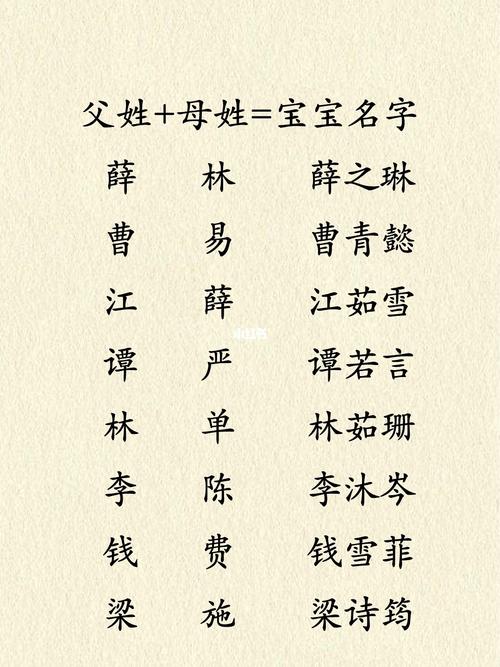 父姓+母姓=宝宝名字
薛 林 薛之琳
曹 易 曹青懿
江 薛 江茹雪
小红书
谭 严 谭若言
林 单 林茹珊
李 陈 李沐岑
钱 费 钱雪菲
梁 施 梁诗筠